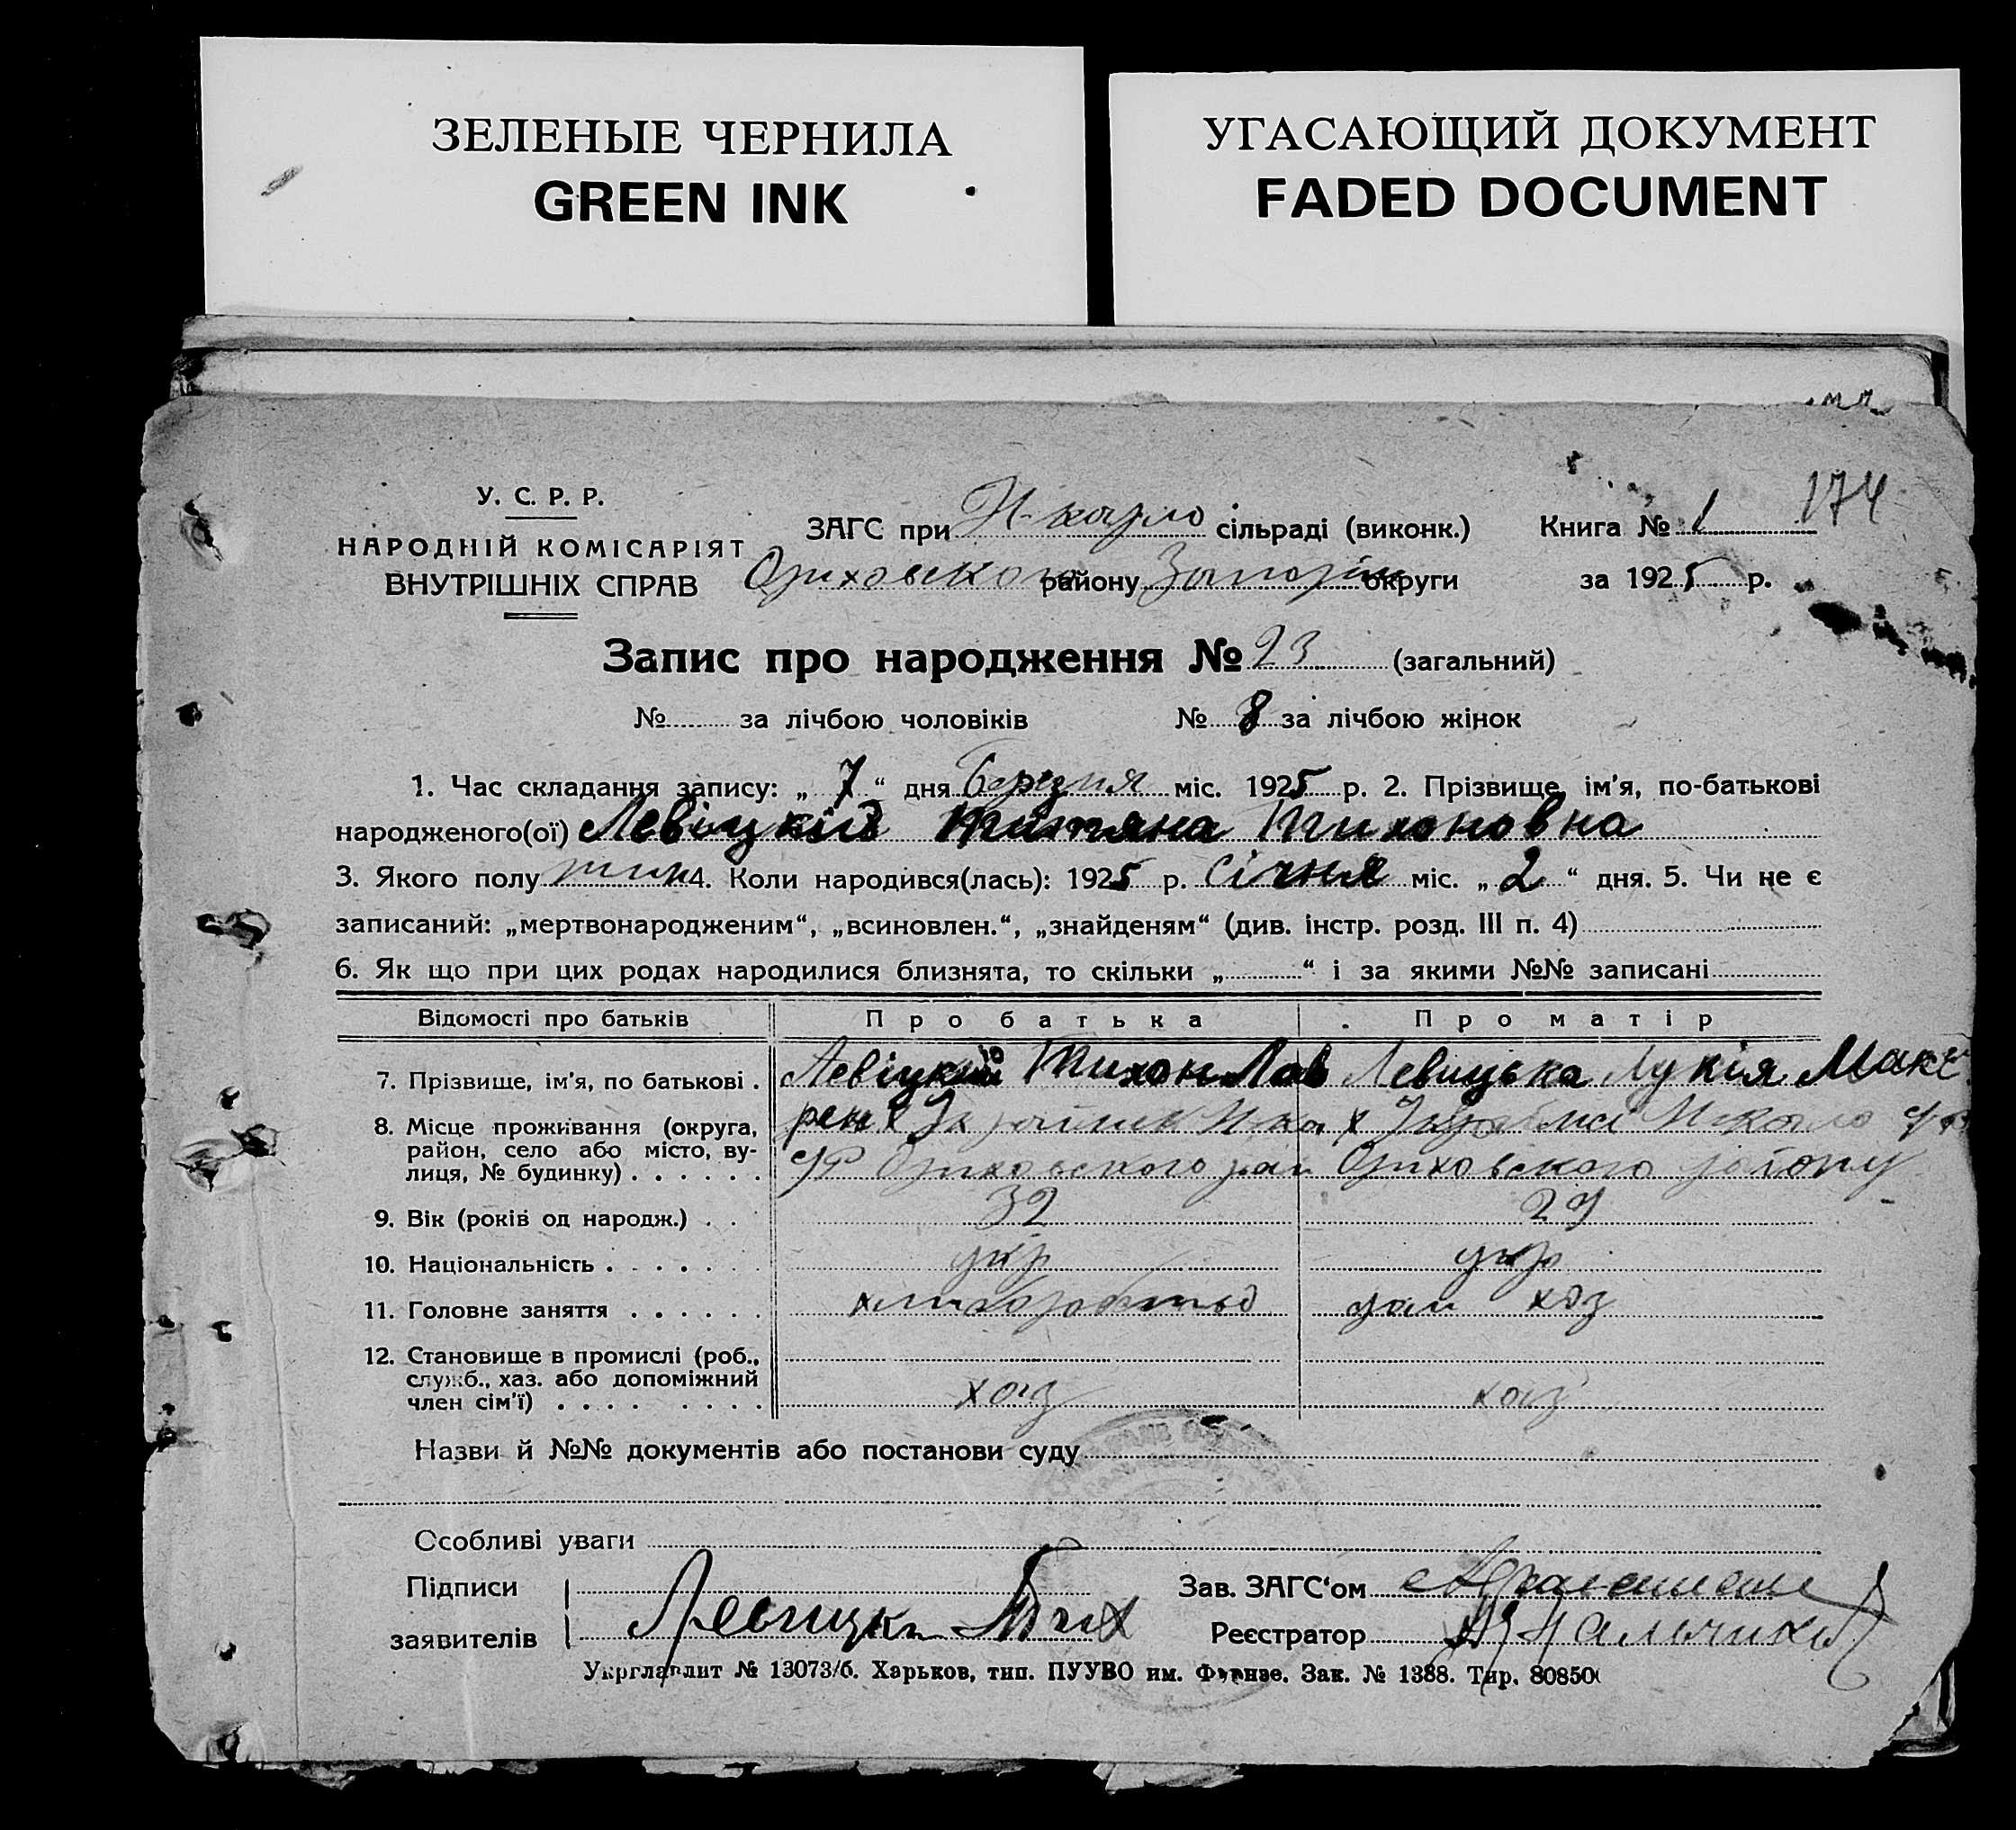 ЗЕЛЕНЫЕ ЧЕРНИЛА
GREEN INK
УГАСАЮЩИЙ ДОКУМЕНТ
FADED DOCUMENT
174
У. С. Р. Р.
НАРОДНІЙ КОМІСАРІЯТ
ВНУТРІШНІХ СПРАВ
ЗАГС при Н-карло сільраді (виконк.) Книга № 1
Оріховського району Запоріж округи за 1925 р.
Запис про народження № 23 (загальний)
№ за лічбою чоловіків № 8 за лічбою жінок
1. Час складання запису: „ 7 “ дня березня міс. 1925 р. 2. Прізвище, ім'я, по-батькові
народженого(ої) Левіцкій Татяна Тихоновна
3. Якого полу жин 4. Коли народився(лась): 1925 р. січня міс. „ 2 “ дня. 5. Чи не є
записаний: „мертвонародженим“, „всиновлен.“, „знайденям“ (див. інстр. розд. III п. 4)
6. Як що при цих родах народилися близнята, то скільки „ “ і за якими №№ записані
Відомості про батьків Про батька Про матір
7. Прізвище, ім'я, по батькові . Левіцкий Тихон Лав Левицька Лукія Макс
8. Місце проживання (округа, рен х
район, село або місто, ву- Оріховського рай Оріховського району
лиця, № будинку) . . . . . .
9. Вік (років од народж.) . . 32 29
10. Національність . . . . . . . укр укр
11. Головне заняття . . . . . . хліборобство дом хоз
12. Становище в промислі (роб.,
служб., хаз. або допоміжний
член сім'ї) . . . . . . . . хаз хаз
Назви й №№ документів або постанови суду
Особливі уваги
Підписи Зав. ЗАГС‘ом
заявителів Левицки Тих Реєстратор
Укрглавлит № 13073/б. Харьков, тип. ПУУВО им. Фрунзе. Зак. № 1388. Тир. 80850